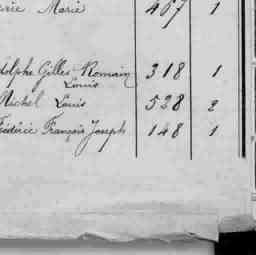 Marie 407 1
Adolphe Gilles Romain 318 1
Louis
Michel Louis 528 2
Frédéric François Joseph 148 1